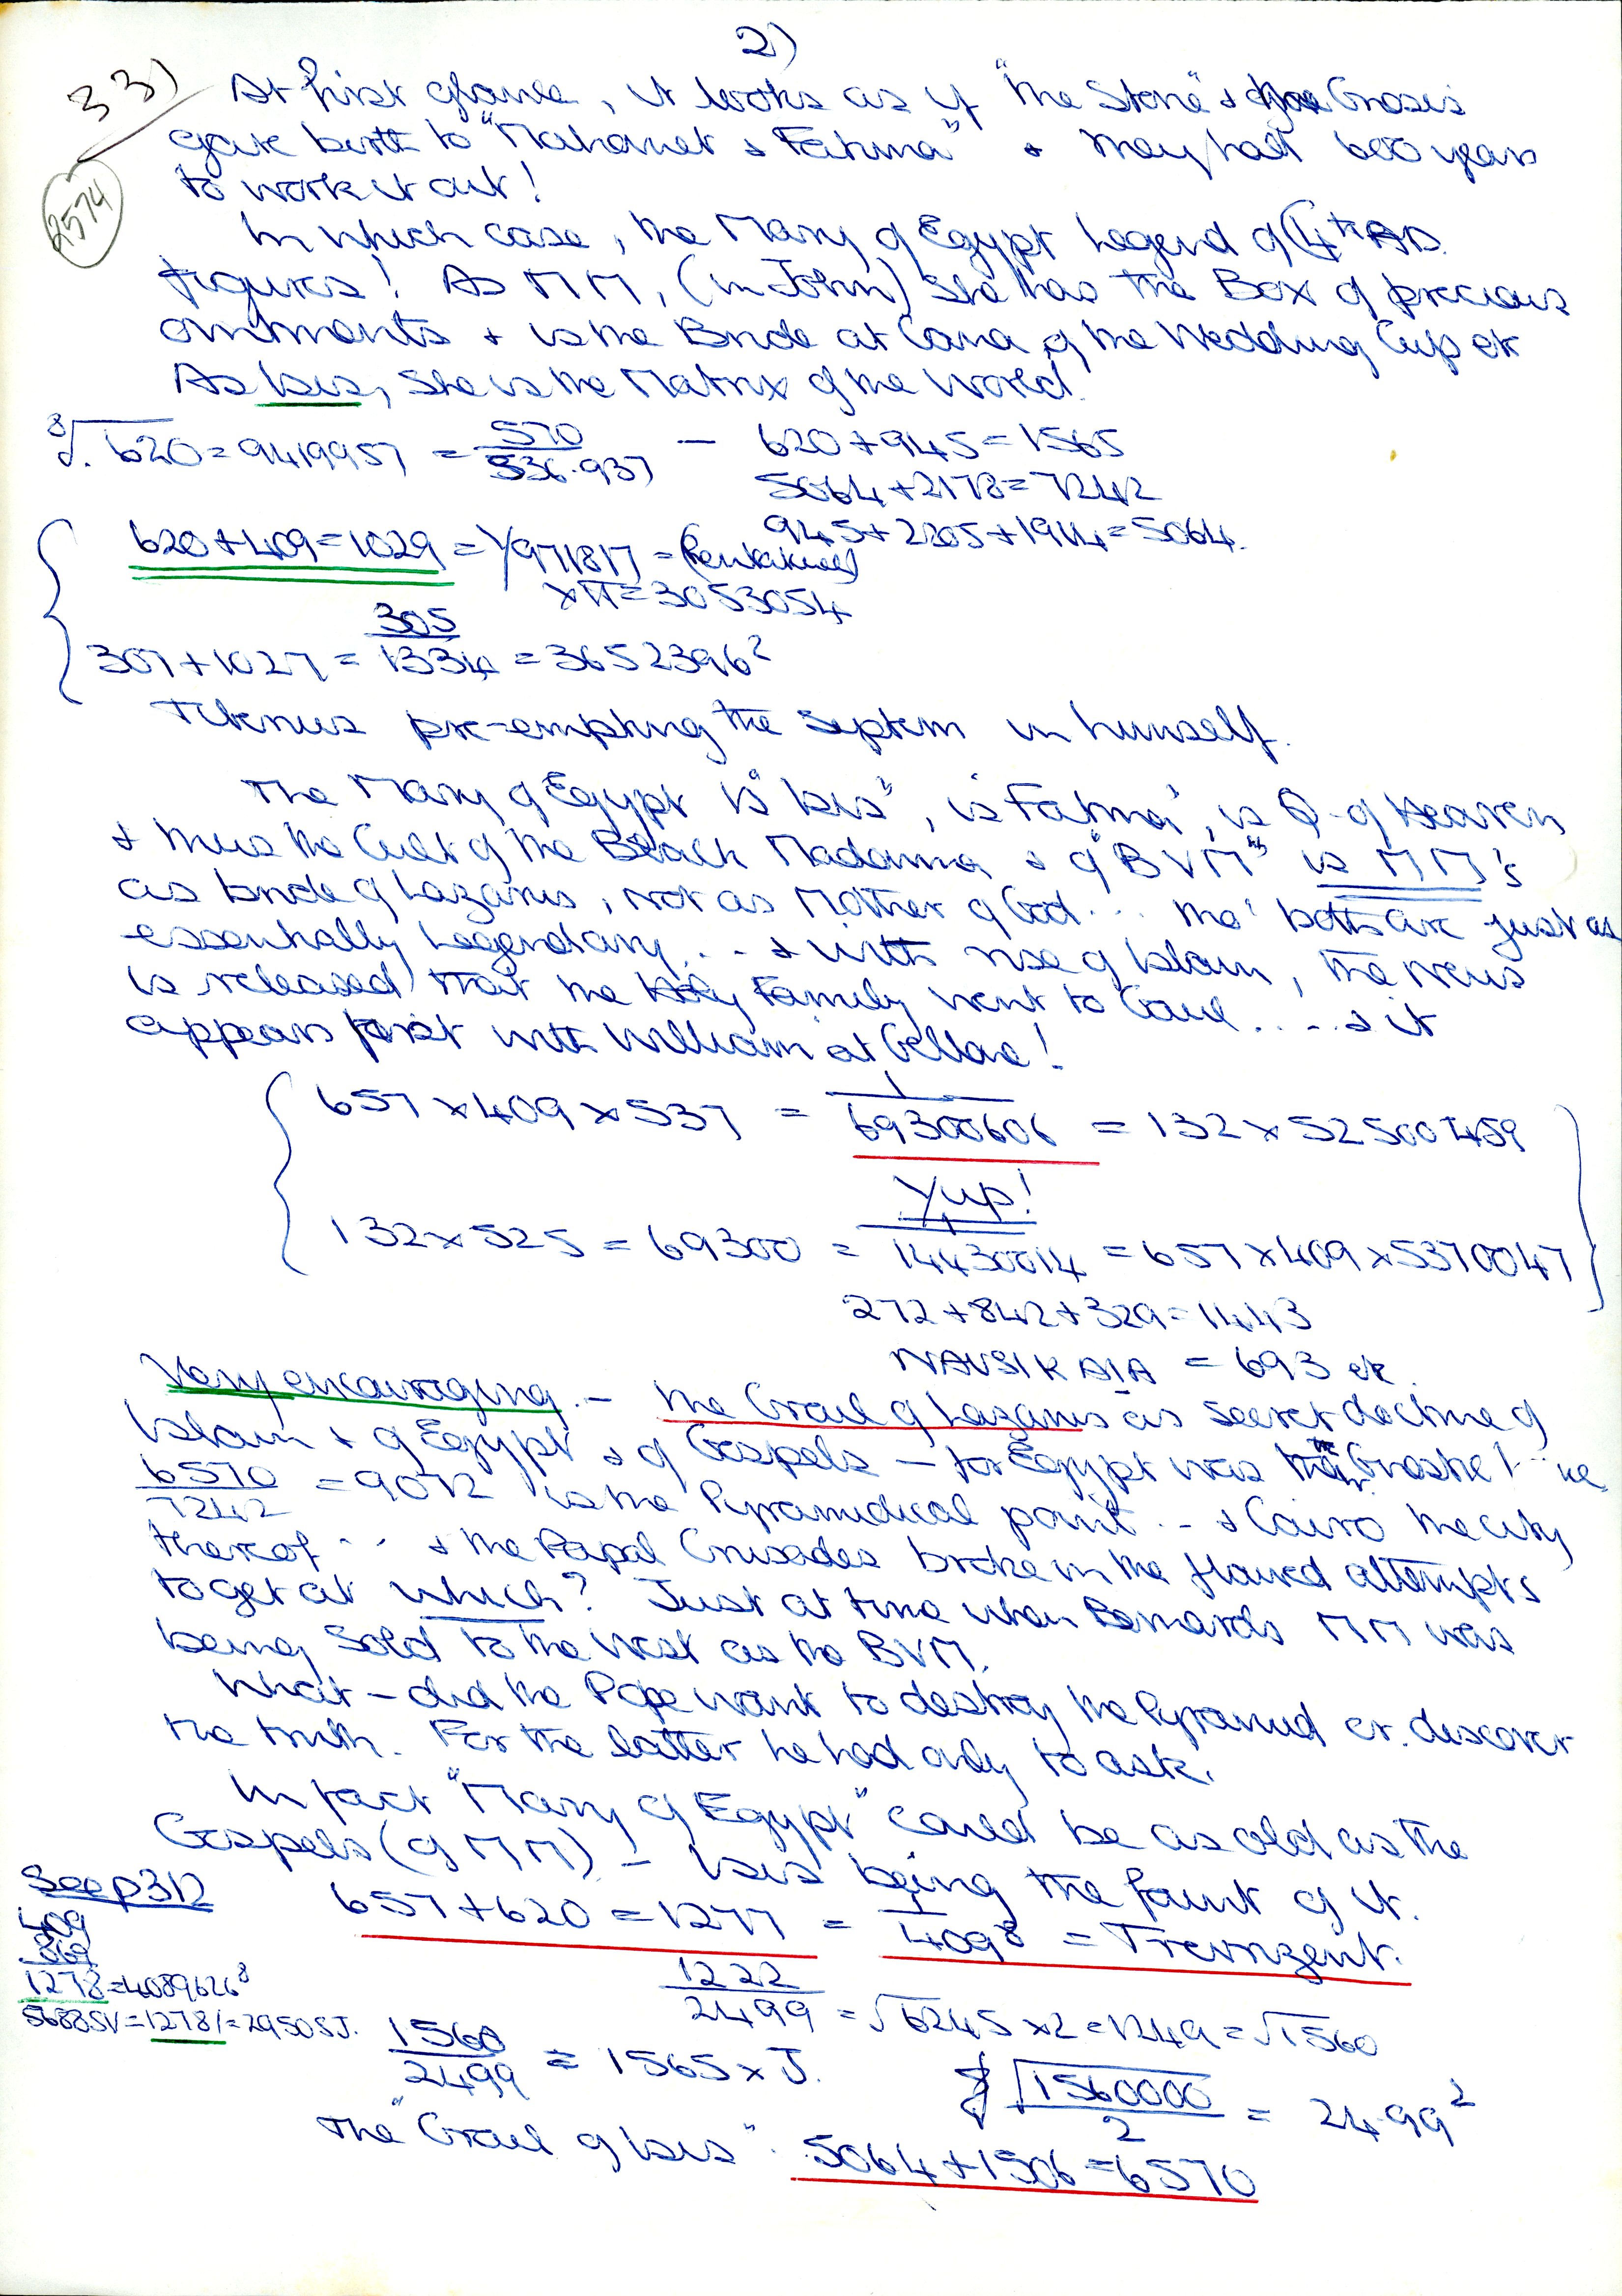 2)
33)
2574
At first glance, it looks as if "the Stone" & the Gnosis
gave birth to "Mahomet & Fatima" & they had 600 years
to work it out!
In which case, the Mary of Egypt Legend of C4th AD.
figures! As MM, (in John) she has the Box of precious
ointments & is the Bride at Cana of the Wedding Cup etc
As Isis, she is the Matrix of the World.
8√.620 = 9419957 = 570/536.937 — 620+945=1565
5064+2178=7242
945+2205+1914=5064.
620+409=1029 = 1/971817 = (Pentakised)
×π=3053054
305
307+1027 = 1334 = 3652396²
pre-empting the system in himself.
The Mary of Egypt is "Isis", is 'Fatima', is Q. of Heaven
& thus the Cult of the Black Madonna & of "BVM" is MM's
as bride of Lazarus, not as Mother of God... tho' both are just as
essentially Legendary... & with rise of Islam, the news
is released that the Holy Family went to Gaul.... & it
appears first with William at Gellone!
657×409×537 = 1/69300606 = 132×52500459
Yup!
132×525 = 69300 = 1/14430014 = 657×409×5370047
272+842+329=1443
NAUSIKAIA = 693 etc.
Very encouraging. – the Grail of Lazarus as secret doctrine of
Islam & of Egypt & of Gospels – for Egypt was the Gnostic! .. ie
6570/7242 = 9072 is the Pyramidical point... & Cairo the city
thereof... & the Papal Crusades broke in the flawed attempts
to get at which? Just at time when Bernards MM was
being sold to the West as the BVM.
What – did the Pope want to destroy the Pyramid or discover
the truth. For the latter he had only to ask.
In fact "Mary of Egypt" could be as old as the
Gospels (of MM) – Isis being the fount of it.
See p312
657+620=1277 = 1/409⁸ = Trevrizent.
409
869
1278=4089626⁸
5688SV=1278/=2950SJ.
1222/2499 = √6245×2=1249=√1560
1560/2499 = 1565×J.
√1560000/2 = 24.99²
The "Grail of Isis". 5064+1506=6570